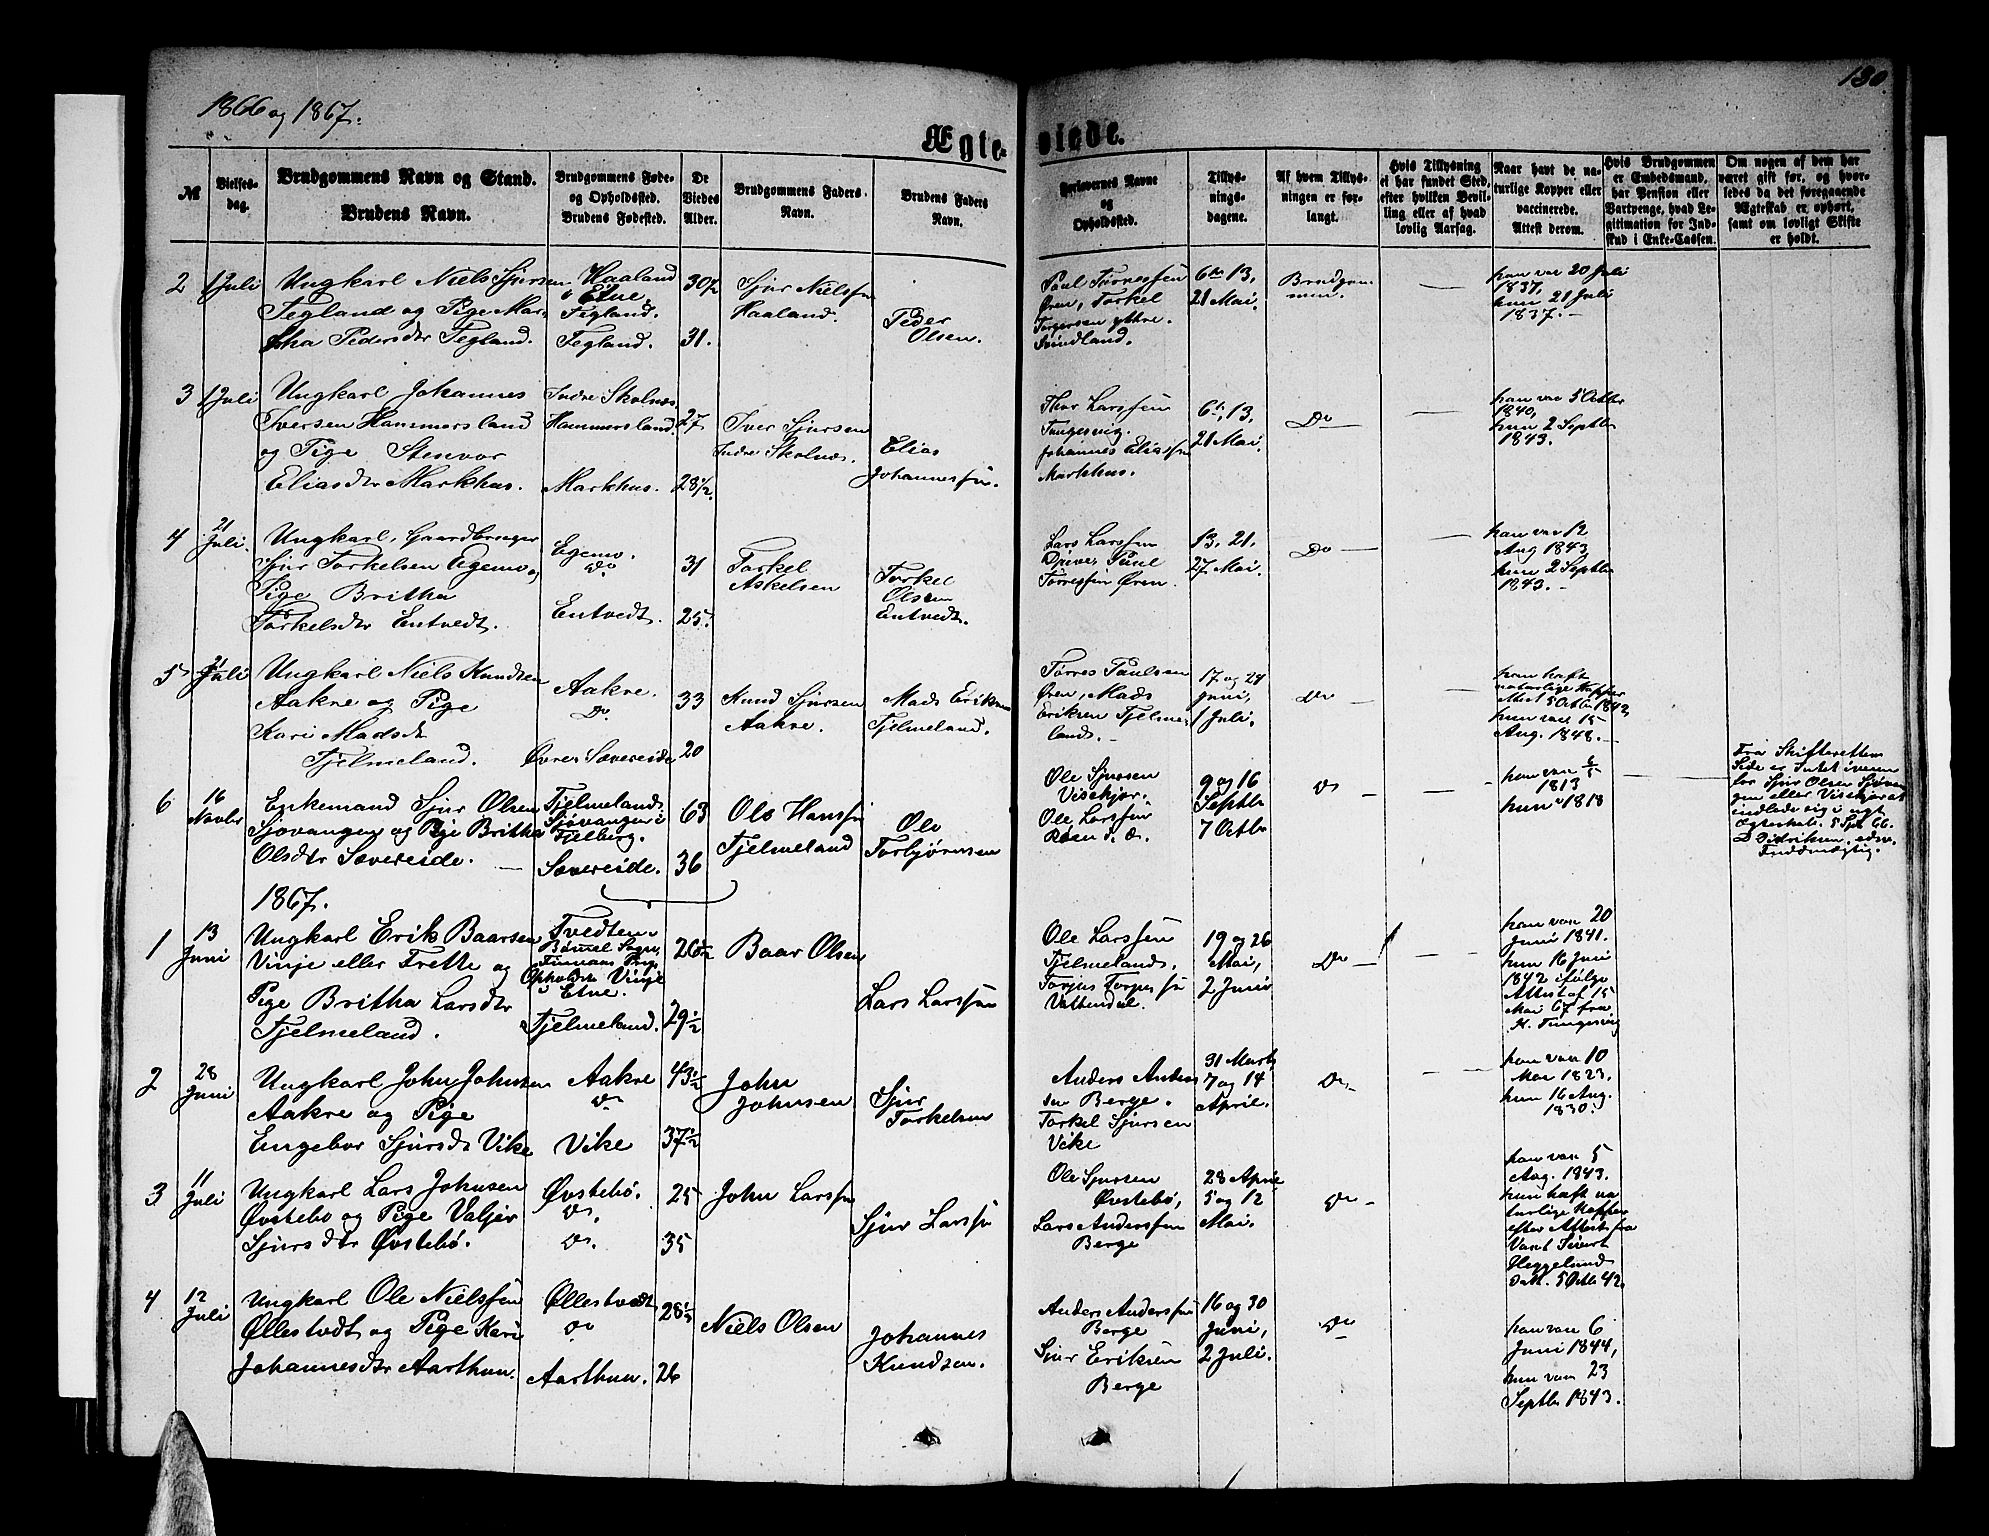 1866 og 1867.
130.
Ægte-
viede.
№
Vielses-
dag.
Brudgommens Navn og Stand.
Brudens Navn.
Brudgommens Føde-
og Opholdssted.
Brudens Fødested.
De
Viedes
Alder.
Brudgommens Faders
Navn.
Brudens Faders
Navn.
Forlovernes Navne
og
Opholdssted.
Tillys-
nings-
dagene.
Af hvem Tillys-
ningen er for-
langt.
Hvis Tillysning
ei har fundet Sted,
efter hvilken Bevil-
ling eller af hvad
lovlig Aarsag.
Naar havt de na-
turlige Kopper eller
vaccinerede.
Attest derom.
Hvis Brudgommen
er Embedsmand,
har Pension eller
Vartpenge, hvad Le-
gitimation for Ind-
skud i Enke-Cassen.
Om nogen af dem har
været gift før, og hvor-
ledes da det foregaaende
Ægteskab er ophørt,
samt om lovligt Skifte
er holdt.
2
1 Juli
Ungkarl Niels Sjursen
Tegland og Pige Mar-
tha Pedersdtr Tegland.
Haaland
i Etne
Tegland.
Tegland.
30½
31.
Sjur Nielsøn
Haaland.
Peder
Olsen.
Paul Tørresen
Øren, Torkel
Torgersen ythre
Svindland.
6te 13,
21 Mai.
Brudgom-
men.
han var 20 Juli
1837,
hun 21 Juli
1837.
3
1 Juli
Ungkarl Johannes
Iversen Hammersland
og Pige Stenvor
Eliasdtr Markhus.
Indre Skolnæs
Hammersland.
Markhus.
27
28½.
Iver Sjursen
Indre Skolnæs.
Elias
Johannesøn.
Thor Larssen
Tungesvig.
Johannes Eliassøn
Markhus.
6te, 13,
21 Mai.
Do
han var 5 Octbr
1840,
hun 2 Septbr
1843.
4
21
Juli.
Ungkarl, Gaardbruger
Sjur Torkelsen Egemo og
Pige Britha
Torkelsdtr Entvedt.
Egemo.
Do
Entvedt.
31
25.
Torkel
Askelsen
Torkel
Olsen
Entvedt.
Lars Larssen
Paul
Tørresøn Øren.
13, 21,
27 Mai.
Do
han var 12
Aug 1843
hun 2 Septbr
1843.
5
21
Juli
Ungkarl Niels Knudsen
Aakre og Pige
Kari Madsdtr
Tjelmeland.
Aakre.
Do
Øvre Sævereide
33
20
Knud Sjursen
Aakre.
Mads Eriksen
Tjelmeland.
Tørres Paulsen
Øren, Mads
Eriksen Tjelme-
land.
17 og 24
Juni,
1 Juli.
Do
han haft
naturlige Kopper
Attest 5 Octbr 1842,
hun var 15
Aug. 1848.
6
16
Novbr
Enkemand Sjur Olsen
Sjovangen og Pige Britha
Olsdtr Sævereide.
Tjelmeland.
Sjøvangen i
Fjelberg.
Sævereide.
63
36
Ole Hansøn
Tjelmeland
Ole
Torbjørnsen
Ole Sjursen
Viskjær.
Ole Larssen
9 og 16
Septbr
7 Octbr
Do
han var 6/5
1813
hun " 1818
Fra Skifterettens
Side er Intet iveien
for Sjur Olsen Sjøvan-
gen eller Viskjær at
indlade sig i nyt
Ægteskab. 5 Spt 66.
D Didriksen.
1867.
1
13
Juni
Ungkarl Erik Baarsen
Vinje eller Frette og
Pige Britha Larsdtr
Tjelmeland.
Tvedten
Bømel Sogn,
Opholdst. Vinje
i Etne.
Tjelmeland.
26½
29½
Baar Olsen
Lars Larssøn
Ole Larssen
Tjelmeland.
Torjus Torgersøn
Vattendal.
19 og 26
Mai,
2 Juni
Do
han var 20
Juni 1841.
hun 16 Juni
1842 ifølge
Attest af 15
Mai 67 fra
H. Tungesvig
2
28
Juni
Ungkarl John Johnsen
Aakre og Pige
Engebor Sjursdt Vike
Aakre
Do
Vike
43½
37½
John
Johnsen
Sjur
Torkelsen
Anders Anders-
sen Berge.
Torkel Sjursen
Vike
31 Marts
7 og 14
April.
Do
han var 10
Mai 1823.
hun 16 Aug.
1830.
3
11
Juli
Ungkarl Lars Johnsen
Øvstebo og Pige Valjer
Sjursdtr Øvstebø.
Øvstebø.
Do.
Do.
25
35
John Larssøn
Sjur Larssøn
Ole Sjursen
Øvstebø,
Lars Anderssen
Berge
28 April
5 og 12
Mai.
Do
han var 5
Aug. 1843.
hun haft na-
turlige Kopper
efter Attest fra
Vacst Sivert
Heggelund
dat. 5 Octbr 42
4
12
Juli
Ungkarl Ole Nielssen
Øllestvedt og Pige Kari
Johannesdtr Aarthun.
Øllestvedt
Do
Aarthun.
28½
26
Niels Olsen
Johannes
Knudsen.
Anders Anderssøn
Berge
Sjur Eriksen
Berge
16 og 30
Juni,
2 Juli.
Do
han var 6
Juni 1844,
hun var 23
Septbr 1843.